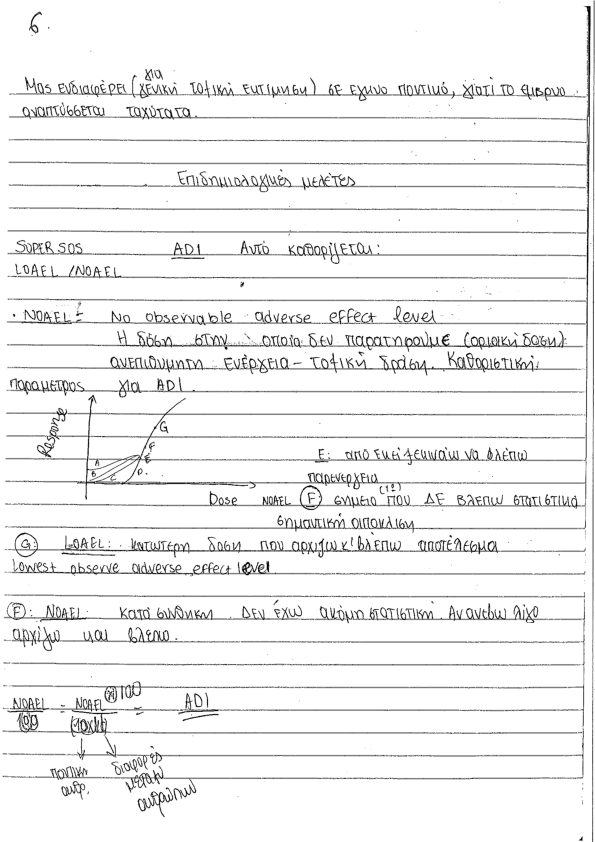 6.
για
Μας ενδιαφέρει (γενική τοξική εκτίμηση) σε έγκυο ποντικό, γιατί το έμβρυο
αναπτύσσεται ταχύτατα.
Επιδημιολογικές μελέτες
SUPER SOS ADI Αυτό καθορίζεται:
LOAEL / NOAEL
• NOAEL = No observable adverse effect level
Η δόση στην οποία δεν παρατηρούμε (οριακή δόση)
ανεπιθύμητη ενέργεια - τοξική δράση. Καθοριστική
παράμετρος για ADI.
Response
G
F
E
A
B
C
D
E: από εκεί ξεκινάω να βλέπω
παρενέργεια
Dose NOAEL (F) σημείο (1º) που ΔΕ βλέπω στατιστικά
σημαντική απόκλιση
G: LOAEL: κατώτερη δόση που αρχίζω κ' βλέπω αποτέλεσμα
Lowest observe adverse effect level
F: NOAEL κατά συνθήκη. Δεν έχω ακόμη στατιστική. Αν ανέβω λίγο
αρχίζω και βλέπω.
NOAEL = NOAEL 100 = ADI
100 (10x10)
ποντίκι διαφορές
ανθρ. μεταξύ
ανθρώπων